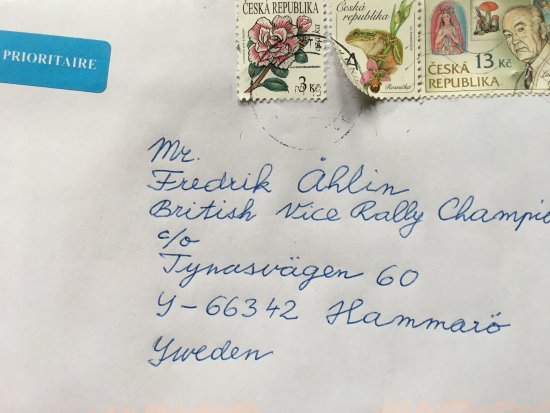 PRIORITAIRE
ČESKÁ REPUBLIKA
3 Kč
Česká
republika
Rosnička
13 Kč
ČESKÁ
REPUBLIKA
Mr.
Fredrik Åhlin
British Vice Rally Champio
c/o
Tynäsvägen 60
S-66342 Hammarö
Sweden